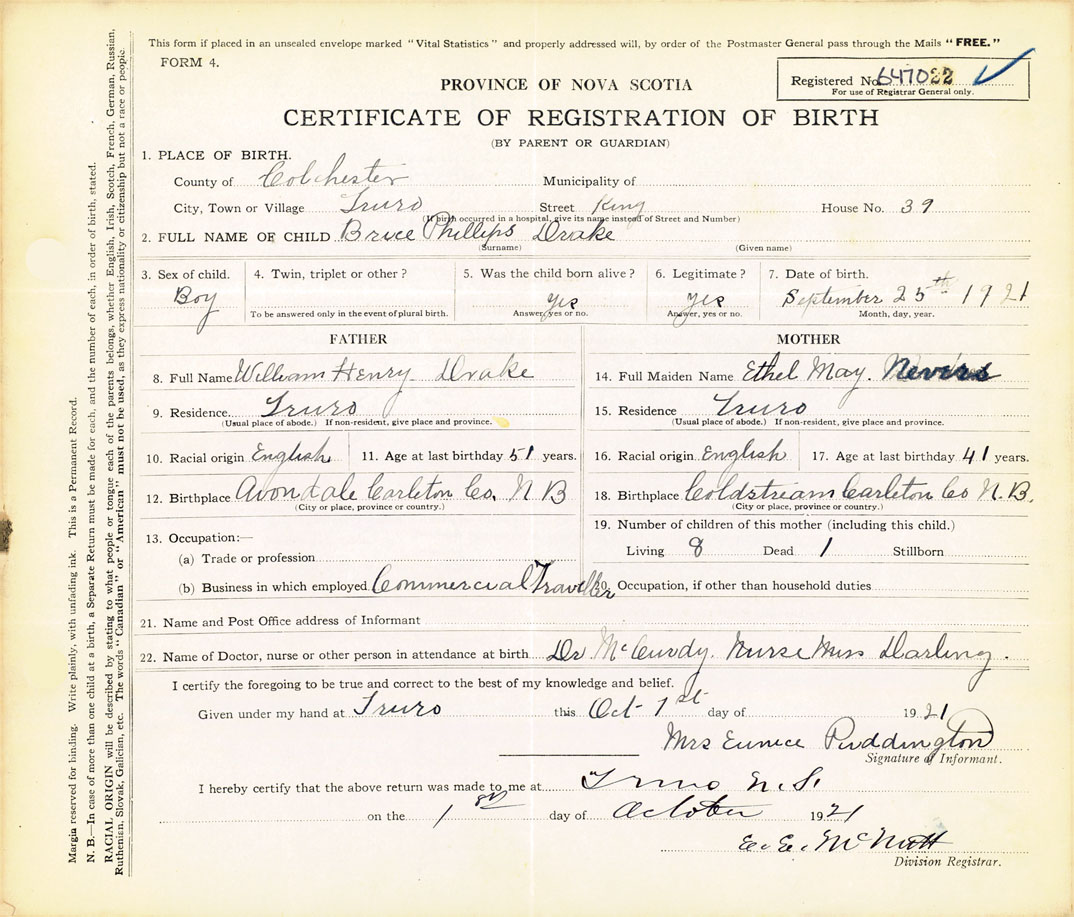 This form if placed in an unsealed envelope marked "Vital Statistics" and properly addressed will, by order of the Postmaster General pass through the Mails "FREE."
FORM 4.
Registered No. 647022
For use of Registrar General only.
PROVINCE OF NOVA SCOTIA
CERTIFICATE OF REGISTRATION OF BIRTH
(BY PARENT OR GUARDIAN)
1. PLACE OF BIRTH.
County of Colchester Municipality of
City, Town or Village Truro Street King House No. 39
(If birth occurred in a hospital, give its name instead of Street and Number)
2. FULL NAME OF CHILD Bruce Phillips Drake
(Surname) (Given name)
3. Sex of child. 4. Twin, triplet or other? 5. Was the child born alive? 6. Legitimate? 7. Date of birth.
Boy Yes Yes September 25th 1921
To be answered only in the event of plural birth. Answer, yes or no. Answer, yes or no. Month, day, year.
FATHER MOTHER
8. Full Name William Henry Drake 14. Full Maiden Name Ethel May Nevers
9. Residence. Truro 15. Residence Truro
(Usual place of abode.) If non-resident, give place and province. (Usual place of abode.) If non-resident, give place and province.
10. Racial origin English 11. Age at last birthday 51 years. 16. Racial origin English 17. Age at last birthday 41 years.
12. Birthplace Avondale Carleton Co, N B 18. Birthplace Coldstream Carleton Co N.B.
(City or place, province or country.) (City or place, province or country.)
13. Occupation:— 19. Number of children of this mother (including this child.)
(a) Trade or profession Living 8 Dead 1 Stillborn
(b) Business in which employed Commercial Traveller 20. Occupation, if other than household duties
21. Name and Post Office address of Informant
22. Name of Doctor, nurse or other person in attendance at birth Dr McCurdy Nurse Miss Darling.
I certify the foregoing to be true and correct to the best of my knowledge and belief.
Given under my hand at Truro this Oct 1st day of 1921
Mrs Eunice Puddington
Signature of Informant.
I hereby certify that the above return was made to me at Truro N.S.
on the 1st day of October 1921
E. E. McNutt
Division Registrar.
Margin reserved for binding. Write plainly, with unfading ink. This is a Permanent Record.
N. B.—In case of more than one child at a birth, a Separate Return must be made for each, and the number of each, in order of birth, stated.
RACIAL ORIGIN will be described by stating to what people or tongue each of the parents belongs, whether English, Irish, Scotch, French, German, Russian,
Ruthenian, Slovak, Galician, etc. The words "Canadian" or "American" must not be used, as they express nationality or citizenship but not a race or people.